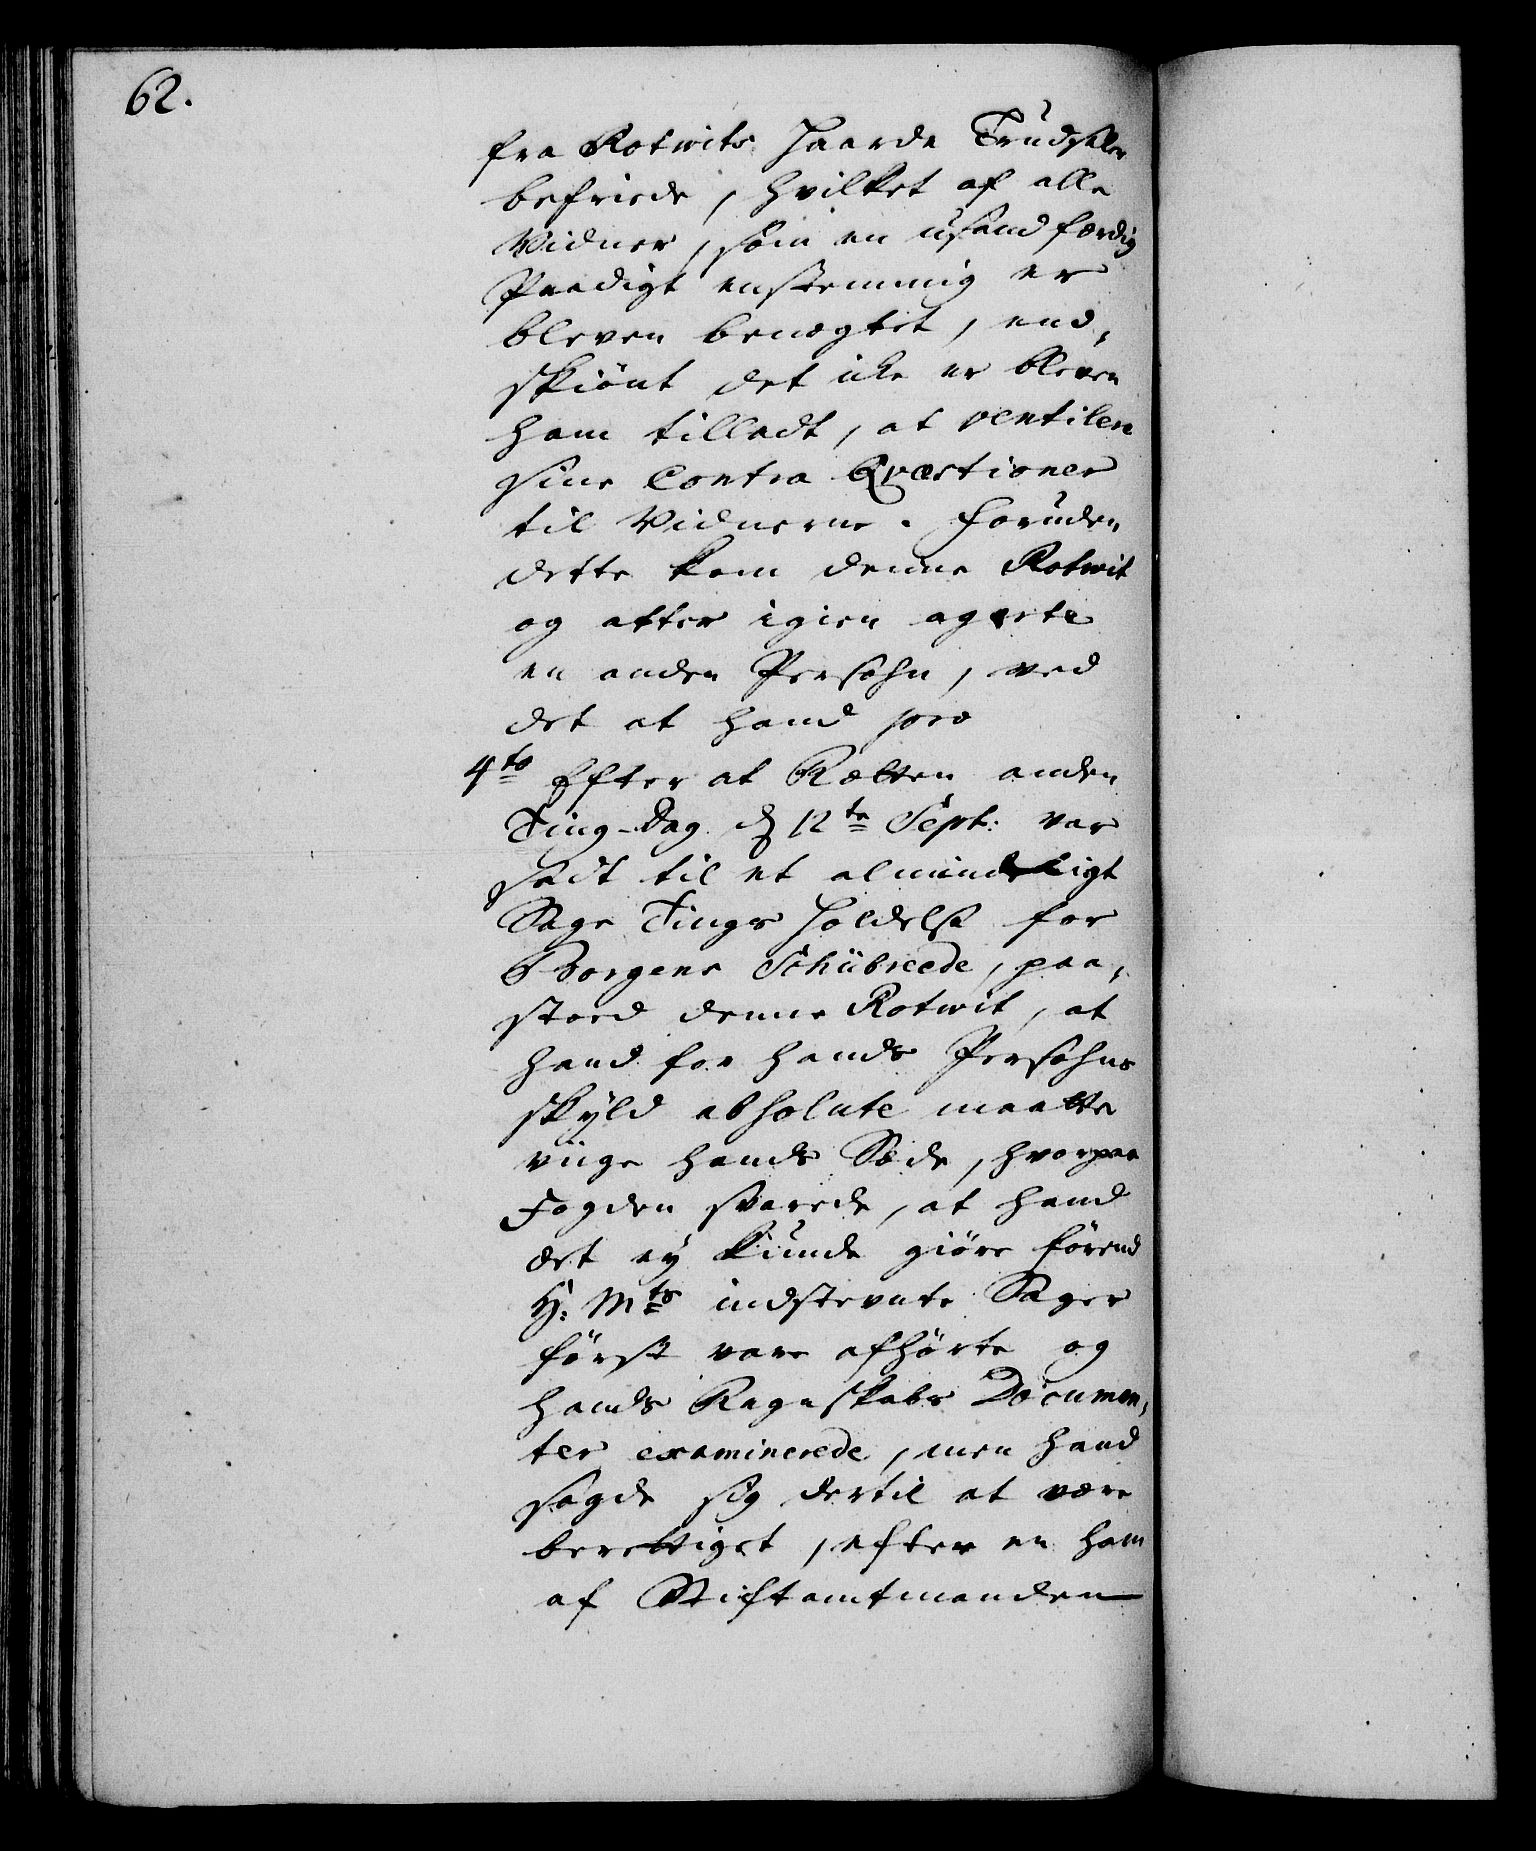 62.
fra Rotwits haarde Trudsler
befriede, hvilket af alle
Vidner, som en usandfærdig
Prædigt enstemmig er
bleven benægtet, end,
skiønt det icke er bleven
ham tilladt, at ventilere
sine Contra Qvæstioner
til Vidnerne. Foruden
dette kom denne Rotwit
og atter igien agerte
en anden Persohn, ved
det at hand pro
4to Efter at Rætten anden
Ting-Dag d. 12te Sept: var
sadt til et almindeligt
Sage Tings Holdelse for
Borgens Schübreede, paa,
stoed denne Rotwit, at
hand for hands Persohns
skyld absolute maatte
viige hands Sæde, hvorpaa
Fogden svarede, at hand
det ey kunde giøre førend
H: Mts indstevnte Sager
først vare afhørte og
hands Regnskabs Documen,
ter examinerede, men hand
sagde sig dertil at være
berettiget, efter en ham
af Stiftamtmanden